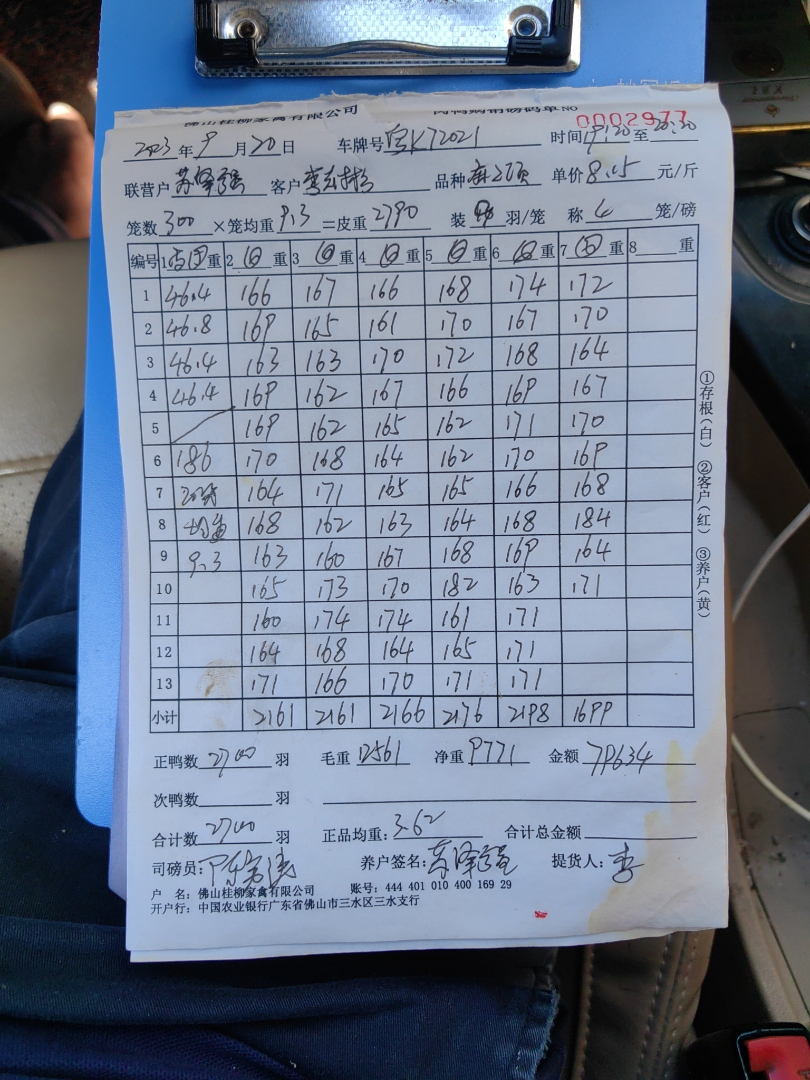 佛山桂柳家禽有限公司 肉鸭购销磅码单 NO 0002977
2023年9月20日 车牌号 粤K72021 时间 19:20至20:20
联营户 苏泽强 客户 品种 单价 8.15 元/斤
笼数 300 ×笼均重 9.3 =皮重 2790 装 羽/笼 称 4 笼/磅
编号 1 重 2 重 3 重 4 重 5 重 6 重 7 重 8 重
1 46.4 166 167 166 168 174 172
2 46.8 169 165 161 170 167 170
3 46.4 163 163 170 172 168 164
4 46.4 169 162 167 166 169 167
5 169 162 165 162 171 170
6 186 170 168 164 162 170 169
7 164 171 165 165 166 168
8 均重 168 162 163 164 168 184
9 9.3 163 160 167 168 169 164
10 165 173 170 182 163 171
11 160 174 174 161 171
12 164 168 164 165 171
13 171 166 170 171 171
小计 2161 2161 2166 2176 2198 1699
①存根(白) ②客户(红) ③养户(黄)
正鸭数 2700 羽 毛重 12561 净重 9771 金额 79634
次鸭数 羽
合计数 2700 羽 正品均重: 3.62 合计总金额
司磅员: 养户签名: 苏泽强 提货人: 李
户 名: 佛山桂柳家禽有限公司 账号: 444 401 010 400 169 29
开户行: 中国农业银行广东省佛山市三水区三水支行